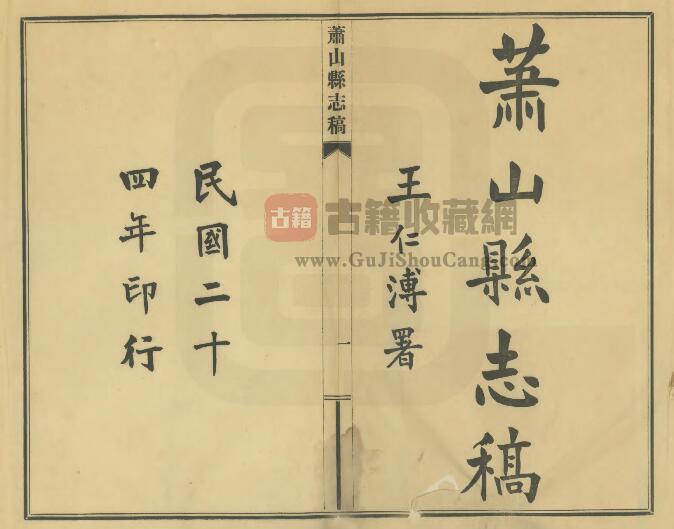 蕭山縣志稿
王仁溥署
蕭山縣志稿
一
民國二十
四年印行
古籍
古籍收藏網
www.GuJiShouCang.com